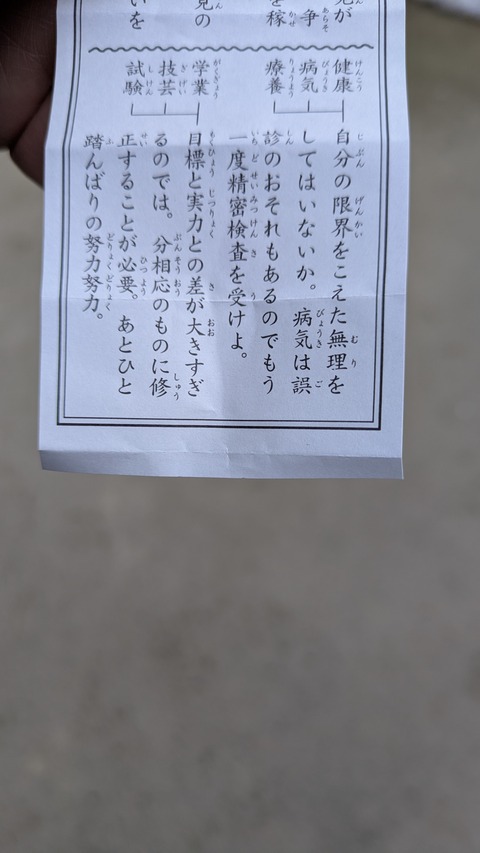 健康
病気
療養
自分の限界をこえた無理を
してはいないか。病気は誤
診のおそれもあるのでもう
一度精密検査を受けよ。
学業
技芸
試験
目標と実力との差が大きすぎ
るのでは。分相応のものに修
正することが必要。あとひと
踏んばりの努力努力。
が
争
を稼
見の
いを